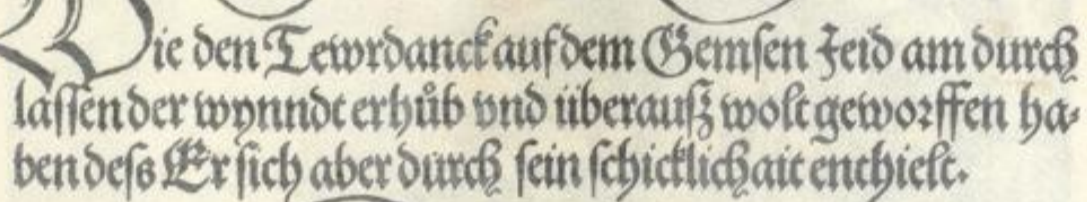 Wie den Tewrdanck auf dem Gemsen Jeid am durch
lassen der wynndt erhůb vnd überauß wolt geworffen ha-
ben dess Er sich aber durch sein schicklichait enthielt.